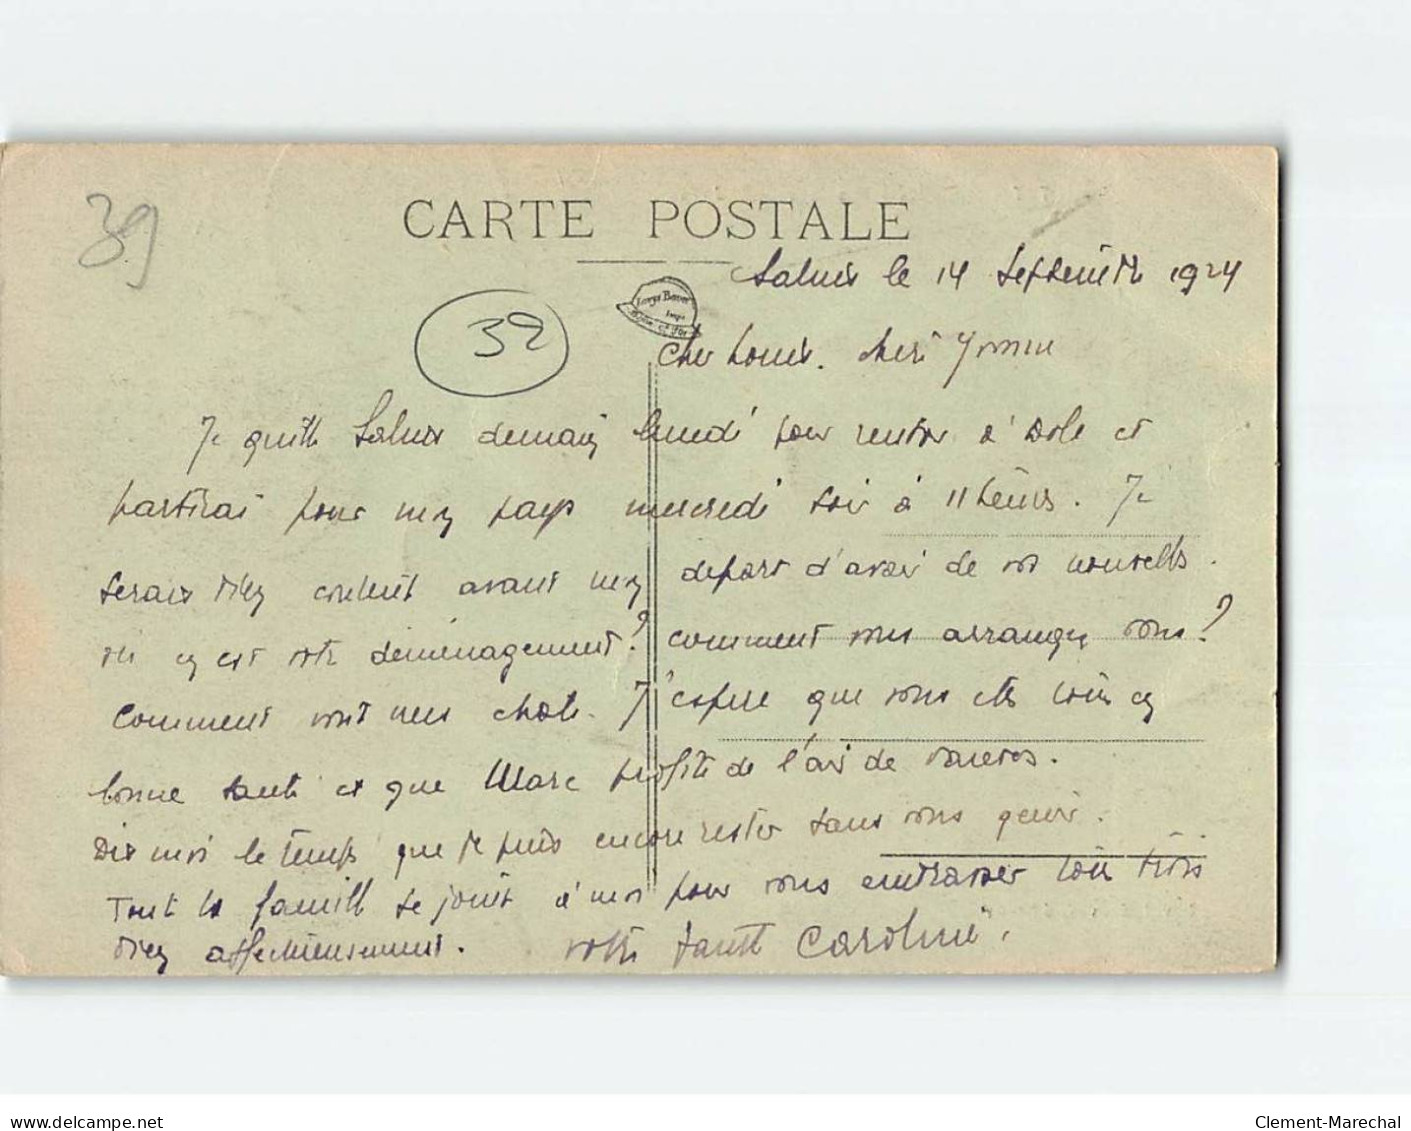 39
CARTE POSTALE
Salins le 14 Septembre 1924
39
Cher Louis. chère Yvonne
Je quitte Salins demain lundi pour rentrer à Dole et
partirai pour mon pays mercredi soir à 11 heures. Je
serais bien content avant mon départ d'avoir de vos nouvelles.
où en est votre déménagement? comment vous arrangez vous?
Comment vont mes chats. J'espère que vous êtes tous en
bonne santé et que Marc profite de l'air de
Dis moi le temps que je puis encore rester sans vous gener.
Tout la famille se joint à moi pour vous embrasser tous trois
bien affectueusement. votre tante Caroline.
www.delcampe.net
Clement-Marechal